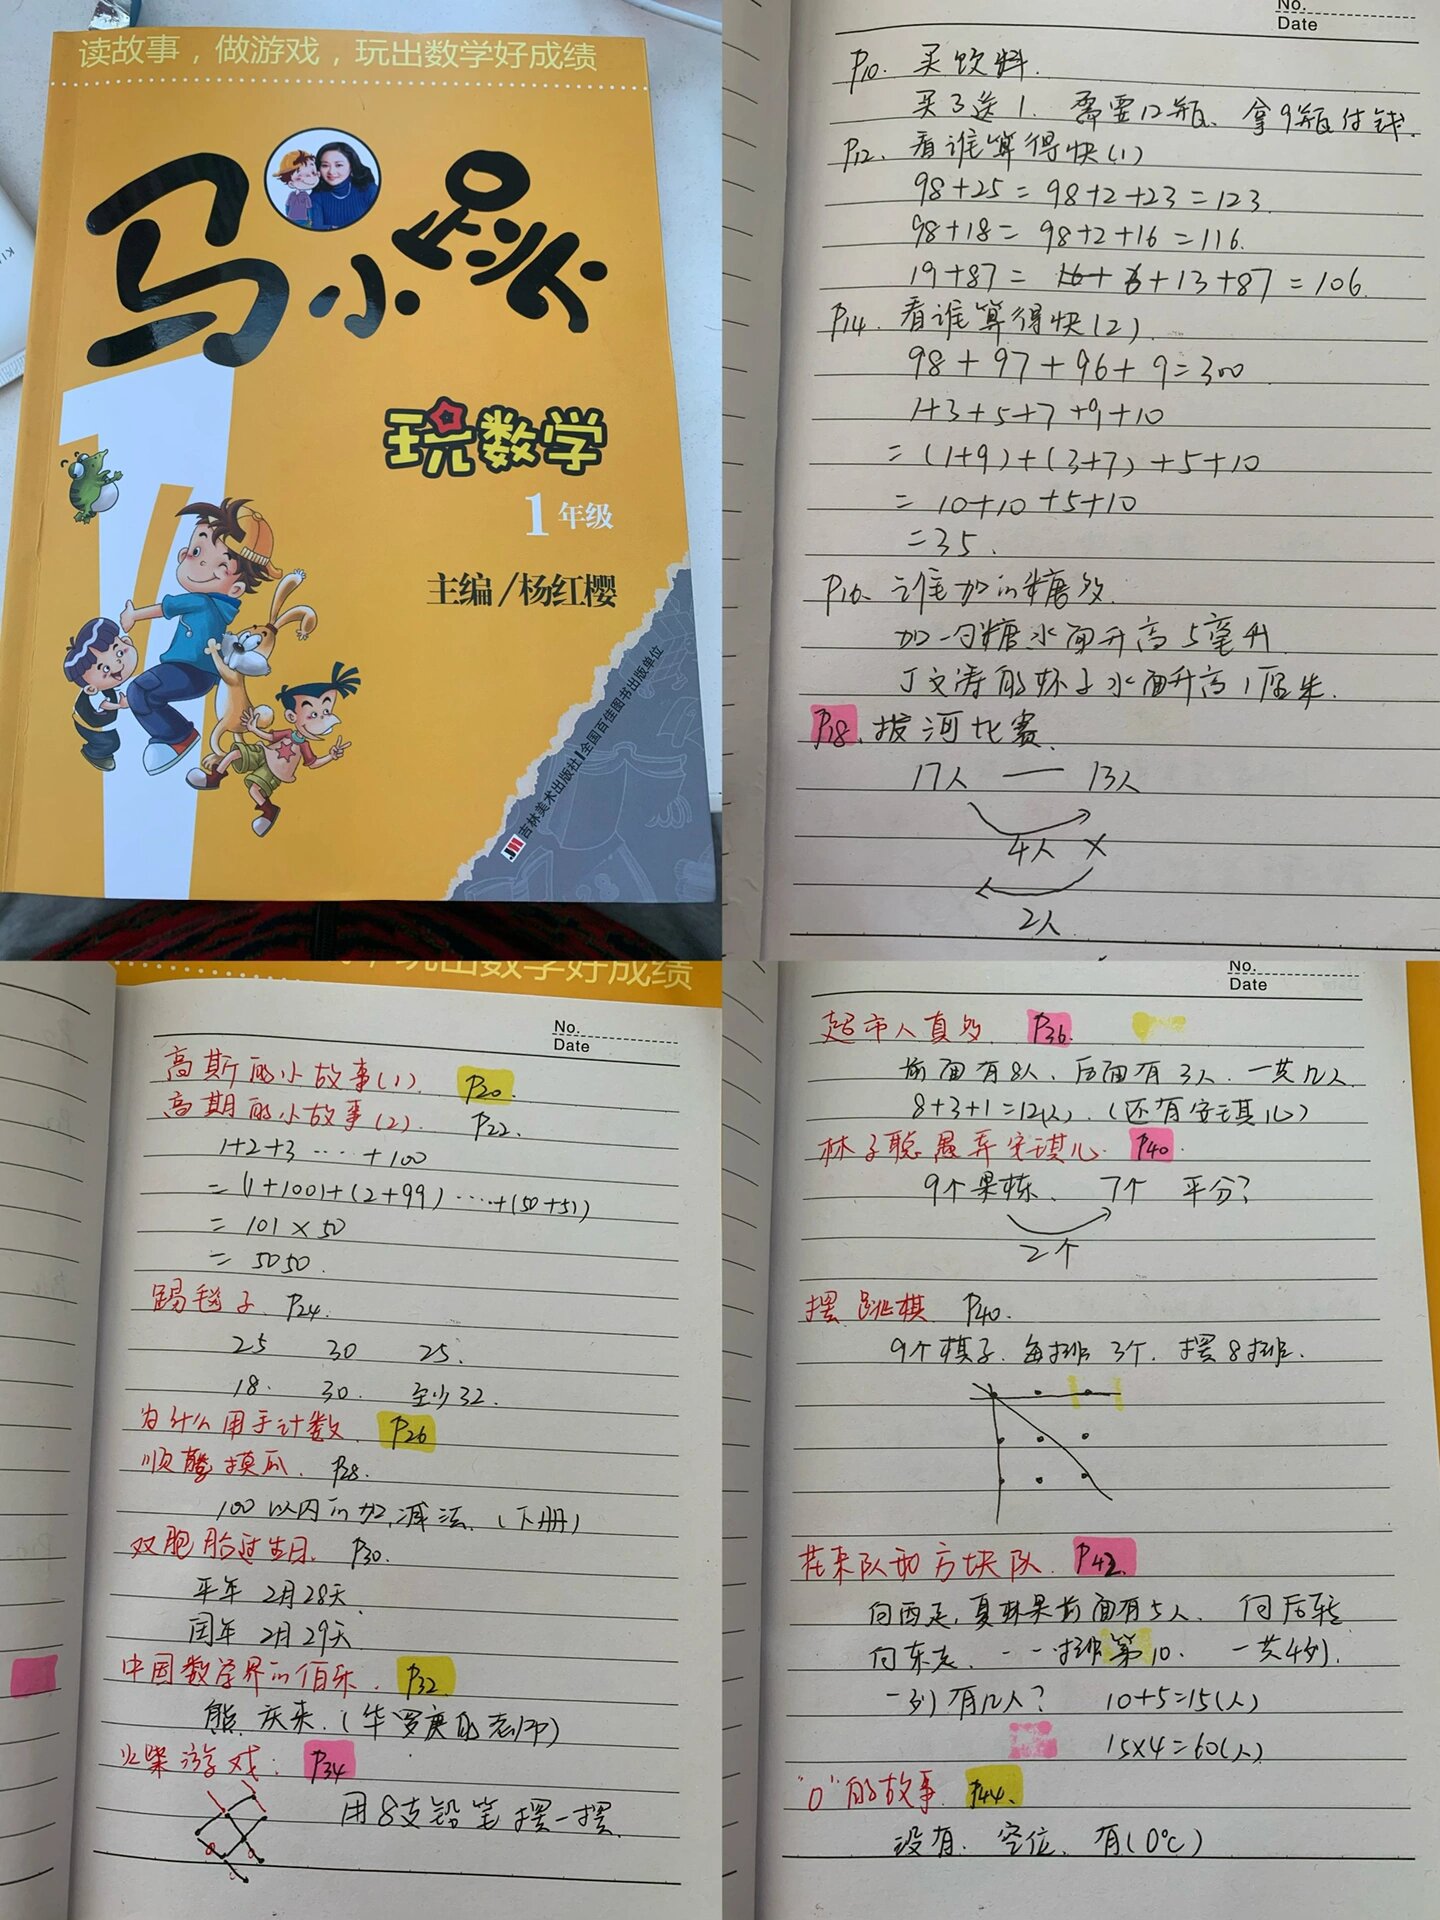 读故事,做游戏,玩出数学好成绩
马小跳
玩数学
1年级
主编/杨红樱
吉林美术出版社 全国百佳图书出版单位
No.
Date
P10. 买饮料.
买3送1. 需要12瓶、拿9瓶付钱.
P12. 看谁算得快(1)
98+25=98+2+23=123.
98+18=98+2+16=116.
19+87= +13+87=106.
P14. 看谁算得快(2).
98+97+96+9=300
1+3+5+7+9+10
=(1+9)+(3+7)+5+10
=10+10+5+10
=35.
P16. 谁加的糖多.
加一勺糖水面升高5毫升
丁文涛的杯子水面升高1厘米.
P18. 拔河比赛.
17人 — 13人
4人 ×
2人
玩出数学好成绩
No.
Date
高斯的小故事(1). P20.
高期的小故事(2). P22.
1+2+3 ····· +100
=(1+100)+(2+99) ·····+(50+51)
=101×50
=5050.
踢毽子. P24.
25 30 25.
18. 30. 至少32.
为什么用手计数. P26
顺藤摸瓜. P28.
100以内的加,减法.(下册)
双胞胎过生日. P30.
平年 2月28天.
闰年 2月29天.
中国数学界的伯乐. P32.
熊庆来.(华罗庚的老师)
火柴游戏: P34
用8支铅笔摆一摆.
No.
Date
超市人真多 P36.
前面有8人、后面有3人、一共几人.
8+3+1=12(人).(还有安琪儿)
林子聪愚弄安琪儿. P40.
9个果冻. 7个 平分?
2个
摆跳棋. P40.
9个棋子. 每排3个. 摆8排.
花束队和方块队. P42.
向西走,夏林果前面有5人、向后转
向东走、- - 排第10. 一共4列.
一列有几人? 10+5=15(人)
15×4=60(人)
“0”的故事. P44.
没有. 空位. 有(0℃)